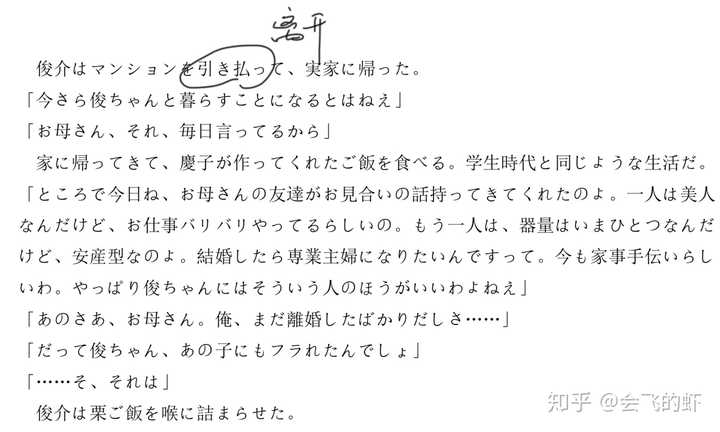 离开
俊介はマンションを引き払って、実家に帰った。
「今さら俊ちゃんと暮らすことになるとはねえ」
「お母さん、それ、毎日言ってるから」
家に帰ってきて、慶子が作ってくれたご飯を食べる。学生時代と同じような生活だ。
「ところで今日ね、お母さんの友達がお見合いの話持ってきてくれたのよ。一人は美人
なんだけど、お仕事バリバリやってるらしいの。もう一人は、器量はいまひとつなんだ
けど、安産型なのよ。結婚したら専業主婦になりたいんですって。今も家事手伝いらし
いわ。やっぱり俊ちゃんにはそういう人のほうがいいわよねえ」
「あのさあ、お母さん。俺、まだ離婚したばかりだしさ……」
「だって俊ちゃん、あの子にもフラれたんでしょ」
「……そ、それは」
俊介は栗ご飯を喉に詰まらせた。
知乎 @会飞的虾